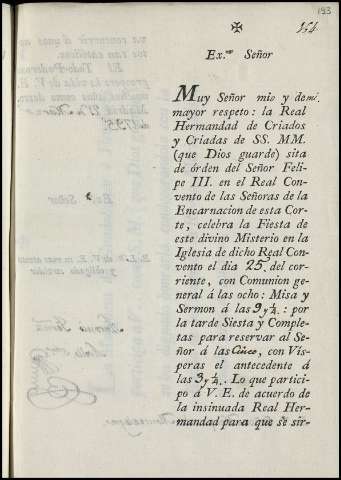 193
✠
154
Ex.mo Señor
Muy Señor mio y de mi
mayor respeto: la Real
Hermandad de Criados
y Criadas de SS. MM.
(que Dios guarde) sita
de órden del Señor Feli-
pe III. en el Real Con-
vento de las Señoras de la
Encarnacion de esta Cor-
te, celebra la Fiesta de
este divino Misterio en la
Iglesia de dicho Real Con-
vento el dia 25. del cor-
riente, con Comunion ge-
neral á las ocho: Misa y
Sermon á las 9 y ¼. : por
la tarde Siesta y Comple-
tas para reservar al Se-
ñor á las Cinco, con Vís-
peras el antecedente á
las 3 y ¼. Lo que partici-
po á V. E. de acuerdo de
la insinuada Real Her-
mandad para que se sir-